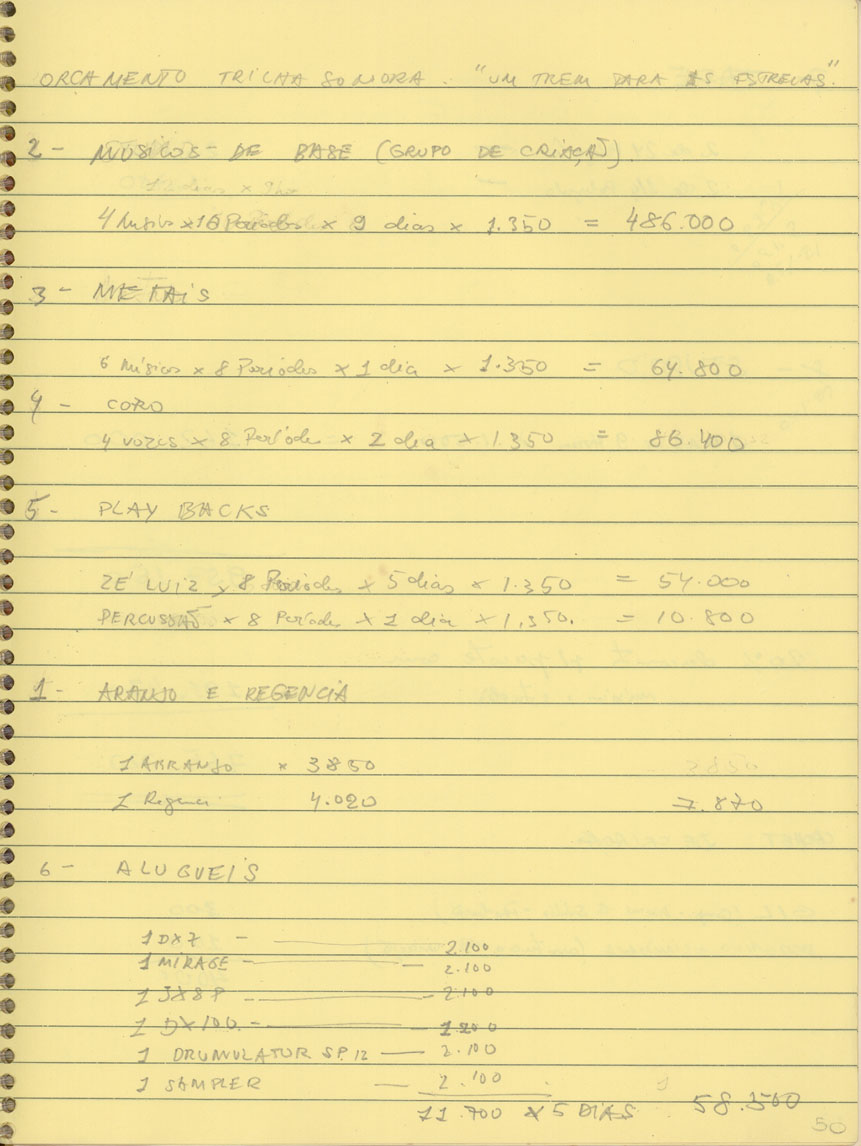 ORCAMENTO TRILHA SONORA. "UM TREM PARA AS ESTRELAS."
2 - MÚSICOS DE BASE (GRUPO DE CRIAÇÃO)
12 dias x
4 Músicos x 10 Períodos x 9 dias x 1.350 = 486.000
3 - METAIS
6 Músicos x 8 Períodos x 1 dia x 1.350 = 64.800
4 - CORO
4 vozes x 8 Períodos x 2 dia x 1.350 = 86.400
5 - PLAY BACKS
ZÉ LUIZ x 8 Períodos x 5 dias x 1.350 = 54.000
PERCUSSÃO x 8 Períodos x 1 dia x 1.350. = 10.800
1 - ARANJO E REGENCIA
1 ARRANJO x 3850 3850
1 Regencia 4.020 7.870
6 - ALUGUEIS
1 DX7 - 2.100
1 MIRAGE - 2.100
1 JX8P - 2.100
1 DX100. - 1200
1 DRUMULATOR SP.12 - 2.100
1 SAMPLER - 2.100
11.700 x 5 DIAS 58.500
50